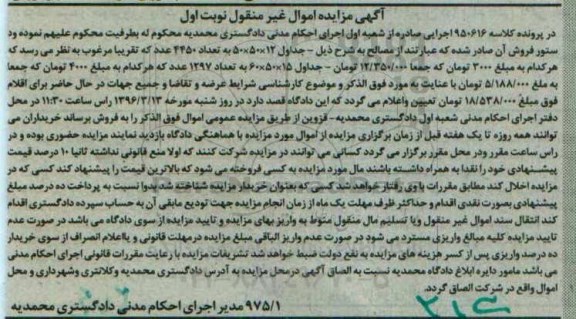 آگهی مزایده اموال غیر منقول نوبت اول
در پرونده کلاسه ۹۵۰۶۱۶ اجرایی صادره از شعبه اول اجرای احکام مدنی دادگستری محمدیه محکوم له بطرفیت محکوم علیهم نموده ود
ستور فروش آن صادر شده که عبارتند از مصالح به شرح ذیل - جداول ۱۲×۵۰×۵۰ به تعداد ۴۴۵۰ عدد که تقریبا مرغوب به نظر می رسد که
هر کدام به مبلغ ۳۰۰۰ تومان که جمعا ۱۳/۳۵۰/۰۰۰ تومان - جداول ۱۵×۵۰×۶۰ به تعداد ۱۲۹۷ عدد که هر کدام به مبلغ ۴۰۰۰ تومان که جمعا
به مبلغ ۵/۱۸۸/۰۰۰ تومان با عنایت به مورد فوق الذکر و موضوع کارشناسی شرایط عرضه و تقاضا و جمیع جهات در حال حاضر برای اقلام
فوق مبلغ ۱۸/۵۳۸/۰۰۰ تومان تعیین واعلام می گردد که این دادگاه قصد دارد در روز شنبه مورخه ۱۳۹۶/۳/۱۳ راس ساعت ۱۱:۳۰ در محل
دفتر اجرای احکام مدنی شعبه اول دادگستری محمدیه- قزوین از طریق مزایده عمومی اموال فوق الذکر را به فروش برساند خریداران می
توانند همه روزه تا یک هفته قبل از زمان برگزاری مزایده از اموال مورد مزایده با هماهنگی دادگاه بازدید نمایند مزایده حضوری بوده و در
راس ساعت مقرر ودر محل مقرر برگزار می گردد کسانی می توانند در مزایده شرکت کنند که اولا منع قانونی نداشته ثانیا ۱۰ درصد قیمت
پیشنهادی خود را نقدا به همراه داشته باشند مال مورد مزایده به کسی فروخته می شود که بالاترین قیمت را پیشنهاد کند کسی که در
مزایده اخلال کند مطابق مقررات با وی رفتار خواهد شد کسی که بعنوان خریدار مزایده شناخته شد بدوا نسبت به پرداخت ده درصد مبلغ
پیشنهادی بصورت نقدی اقدام و حداکثر ظرف مهلت یک ماه از زمان انجام مزایده جهت تودیع مابقی آن به حساب سپرده دادگستری اقدام
کند انتقال سند اموال غیر منقول ویا تسلیم مال منقول منوط به واریز بهای مزایده و تایید مزایده از سوی دادگاه می باشد در صورت عدم
تایید مزایده کلیه مبالغ واریزی مسترد می شود در صورت عدم واریز الباقی مبلغ مزایده در مهلت قانونی و یا اعلام انصراف از سوی خریدار
ده درصد واریزی پس از کسر هزینه های مزایده به نفع دولت ضبط خواهد شد تشریفات مزایده با رعایت مقررات قانونی اجرای احکام مدنی
می باشد مامور دایره ابلاغ دادگاه محمدیه نسبت به الصاق آگهی در محل مزایده به آدرس دادگستری محمدیه و کلانتری وشهرداری و محل
اموال واقع در شرکت الصاق گردد.
۹۷۵/۱ مدیر اجرای احکام مدنی دادگستری محمدیه